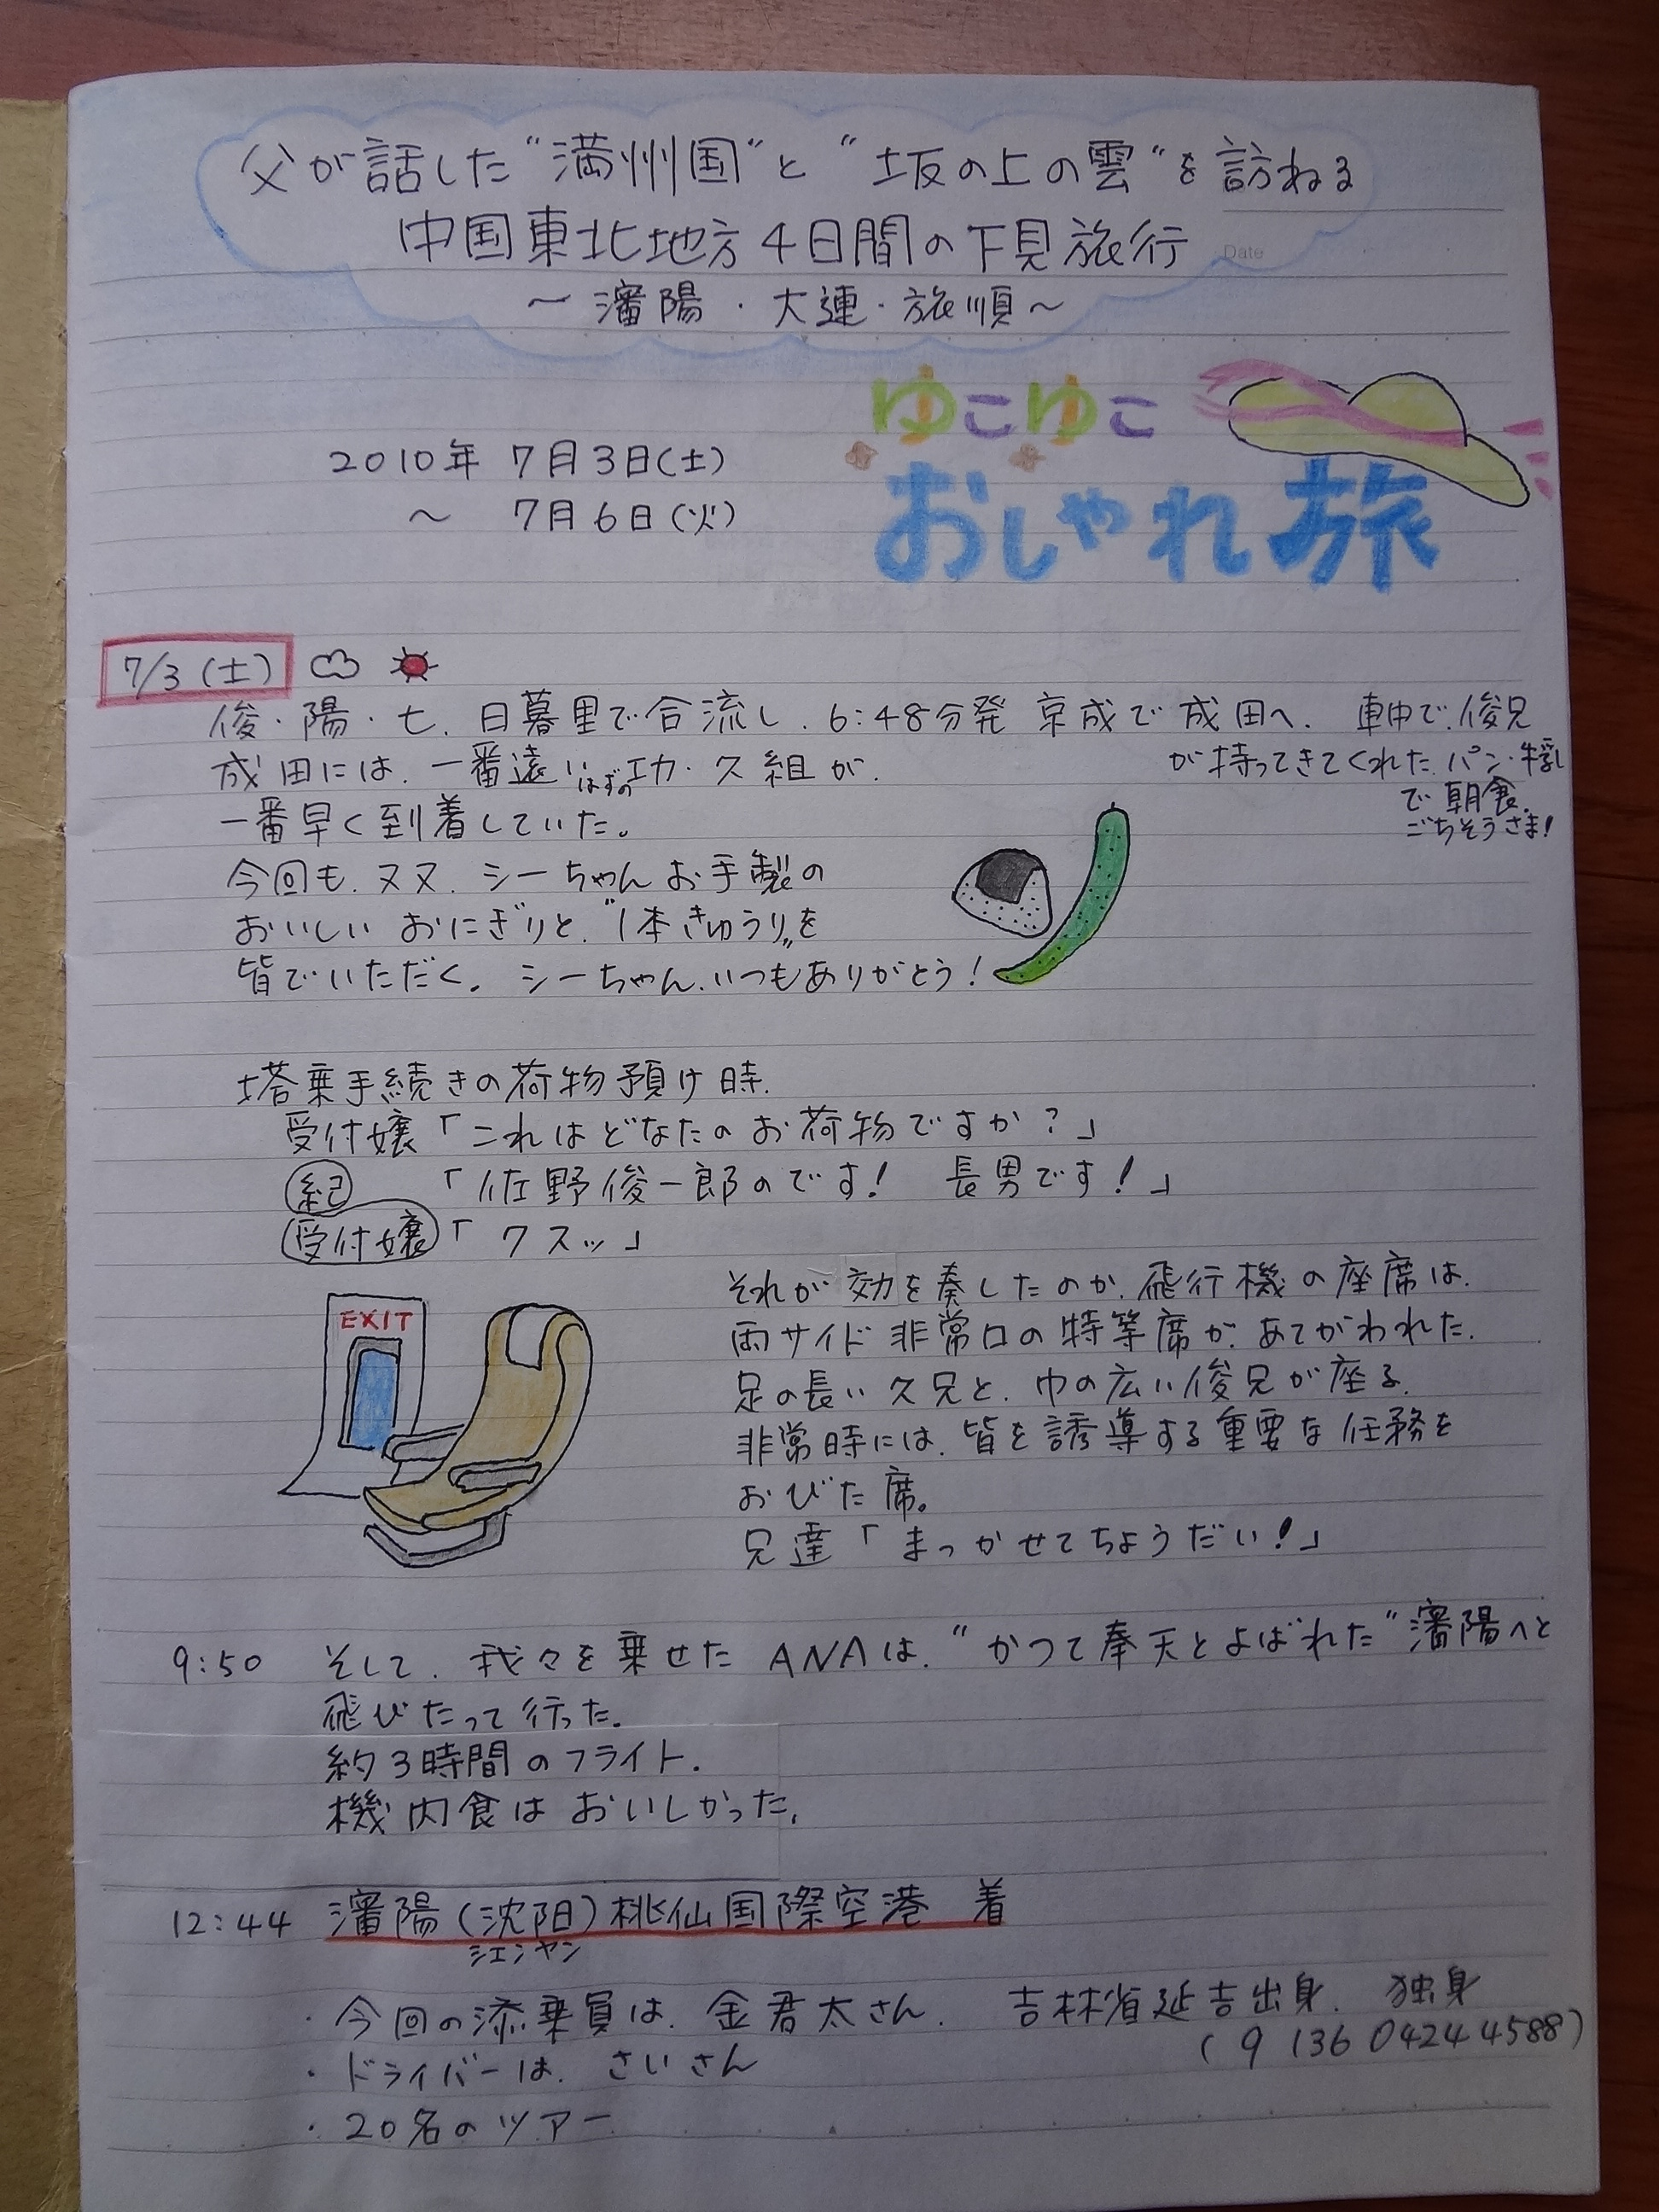 父が話した"満州国"と"坂の上の雲"を訪ねる
中国東北地方4日間の下見旅行
Date
～瀋陽・大連・旅順～
ゆこゆこ
おしゃれ旅
2010年 7月3日(土)
～ 7月6日(火)
7/3(土)
俊・陽・七、日暮里で合流し、6:48分発 京成で成田へ。 車中で、俊兄
が持ってきてくれた、パン・牛乳
で朝食。
ごちそうさま!
成田には、一番遠いはずの功・久組が、
一番早く到着していた。
今回も、ヌヌ、シーちゃんお手製の
おいしい おにぎりと、"1本きゅうり"を
皆でいただく。 シーちゃん、いつもありがとう!
塔乗手続きの荷物預け時、
受付嬢「これはどなたのお荷物ですか?」
紀 「佐野俊一郎のです! 長男です!」
受付嬢「クスッ」
EXIT
それが効を奏したのか、飛行機の座席は、
両サイド非常口の特等席が、あてがわれた。
足の長い久兄と、巾の広い俊兄が座る。
非常時には、皆を誘導する重要な任務を
おびた席。
兄達「まっかせてちょうだい!」
9:50 そして、我々を乗せたANAは、"かつて奉天とよばれた"瀋陽へと
飛びたって行った。
約3時間のフライト。
機内食はおいしかった。
12:44 瀋陽(沈阳)桃仙国際空港 着
シェンヤン
・今回の添乗員は、金君太さん。 吉林省延吉出身、独身
(9 136 0424 4588)
・ドライバーは、さいさん
・20名のツアー